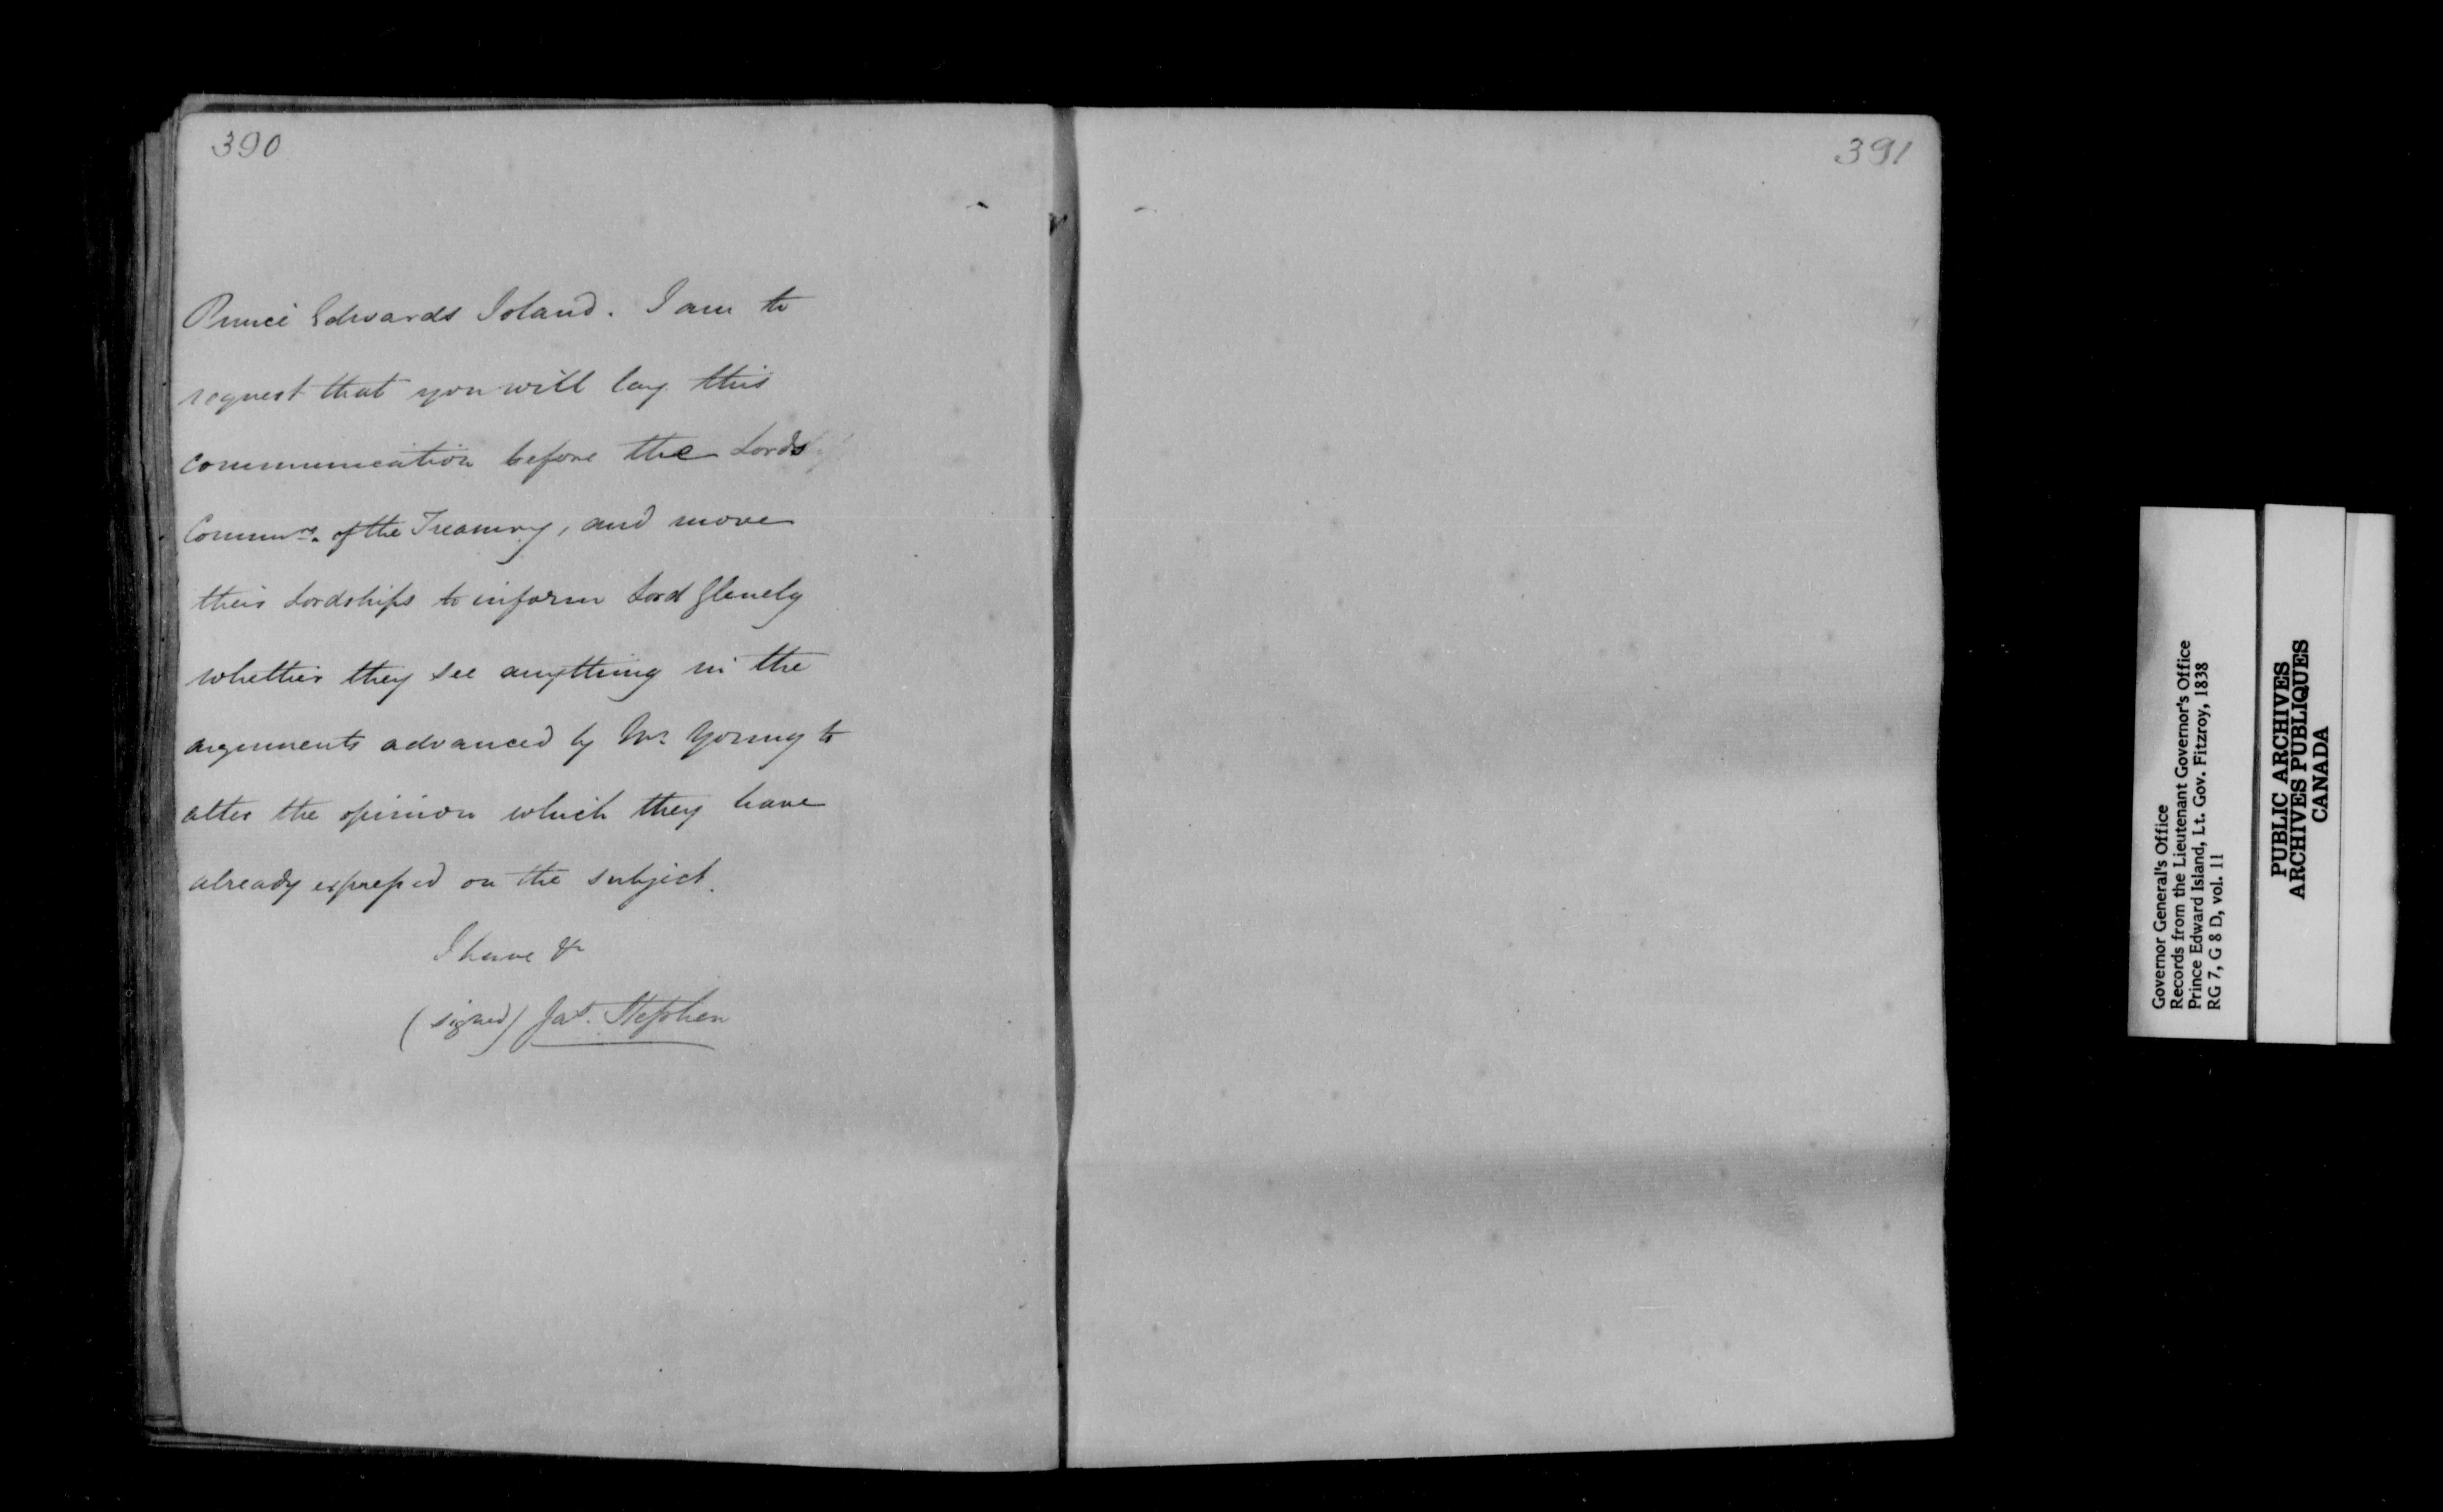 390
Prince Edwards Island. I am to
request that you will lay this
communication before the Lords
Commrs. of the Treasury, and move
their Lordships to inform Lord Glenelg
whether they see anything in the
arguments advanced by Mr Young to
alter the opinion which they have
already expressed on the subject.
I have &c
(signed) Jas. Stephen
391
Governor General's Office
Records from the Lieutenant Governor's Office
Prince Edward Island, Lt. Gov. Fitzroy, 1838
RG 7, G 8 D, vol. 11
PUBLIC ARCHIVES
ARCHIVES PUBLIQUES
CANADA